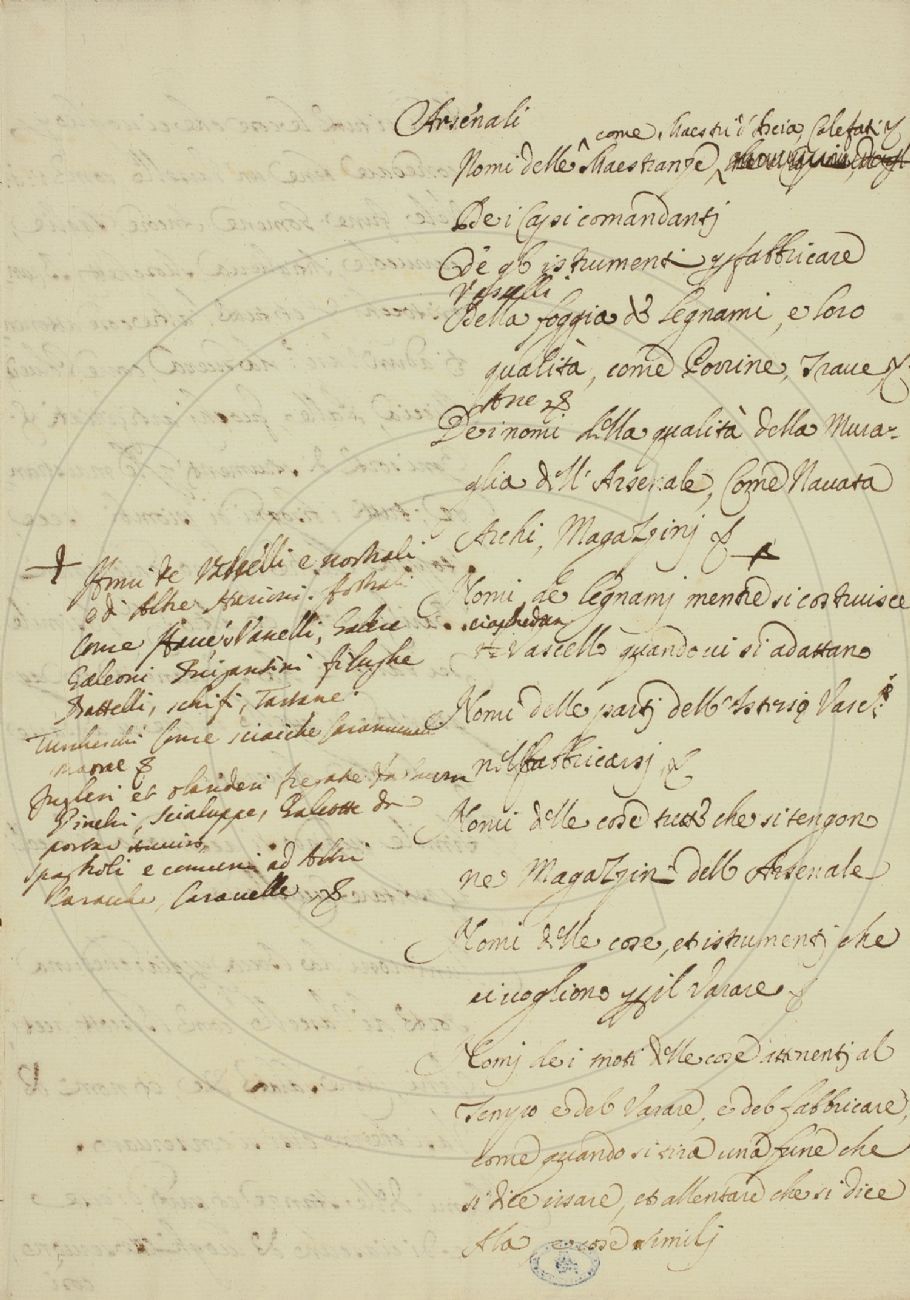 Arsenali
come Maestri d'Ascia, Calefati &
Nomi delle Maestranze,
De i Capi comandanti
De gl' istrumenti p fabbricare
Vascelli
Della foggia de Legnami, e loro
qualità, come Porrine, Trave &
Ane &
De i nomi della qualità della Mura-
glia dell' Arsenale, Come Navata
Archi, Magazzinj &
Nomi de Legnamj mentre si costruisce
Vascello quando vi si adattano
Nomi delle partj dell' Vasc.
nel fabbricarsj &
Nomi delle cose tutte che si tengon
ne Magazzini dell Arsenale
Nomi delle cose, et istrumentj che
ci vogliono p il Varare &
Nomj de i moti delle cose attnentj al
Tempo e del Varare, e del fabbricare,
come quando si tira una fune che
si dice issare, et allentare che si dice
Ala e cose similj
Nomi de Vasselli e nostrali
e di Altre Nazioni. Nostrali
Come Nave o Vasselli, Galere
Galeoni Brigantini filughe
Battelli, schifi, Tartane
Turcheschi Come sciaiche Caramusali
maone &
Inglesi et olandesi fregate
Pinchi, scialuppe, Galeotte da
portar
Spagnoli e comuni ad Altri
Caracche, Caravelle &